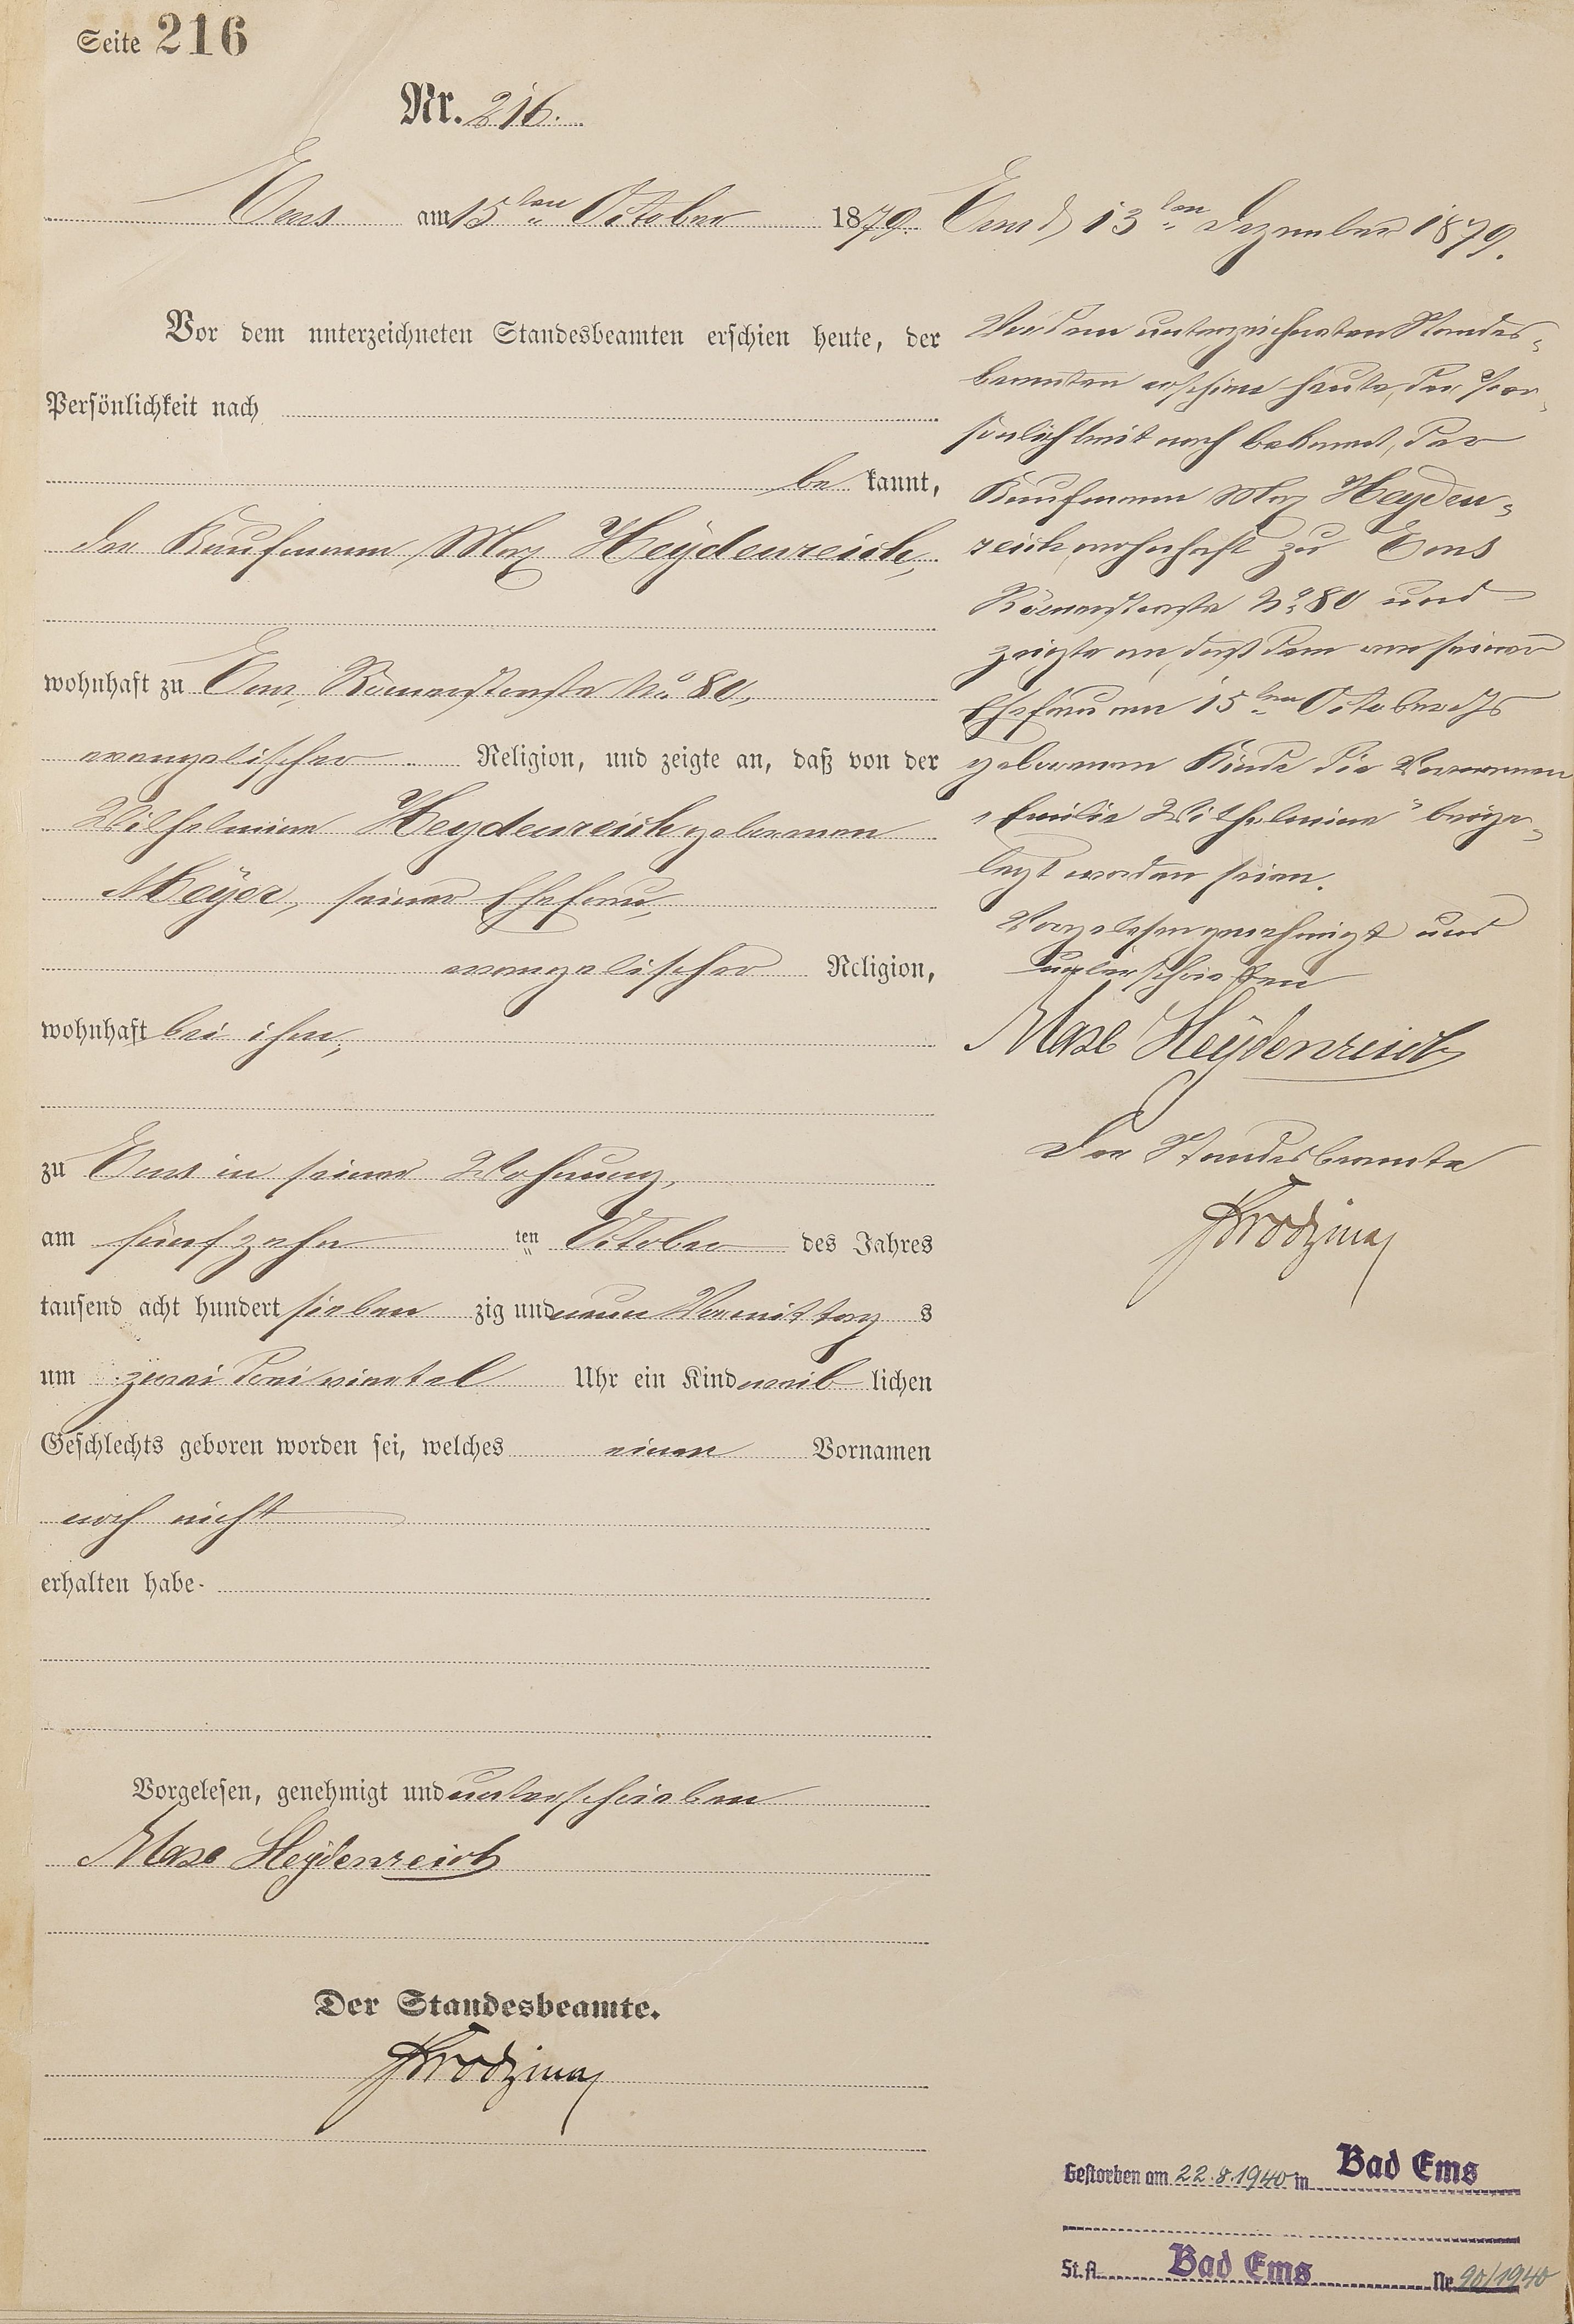 Seite 216
Nr. 216.
Ems am 15ten October 1879.
Vor dem unterzeichneten Standesbeamten erschien heute, der
Persönlichkeit nach
be kannt,
der Kaufmann Max Heÿdenreich,
wohnhaft zu Ems, Römerstraße No. 80,
evangelischer Religion, und zeigte an, daß von der
Wilhelmine Heydenreich geborenen
Meÿer, seiner Ehefrau,
evangelischer Religion,
wohnhaft bei ihm,
zu Ems in seiner Wohnung,
am fünfzehn ten October des Jahres
tausend acht hundert sieben zig und neun Vormittag s
um zwei dreiviertel Uhr ein Kind weib lichen
Geschlechts geboren worden sei, welches einen Vornamen
noch nicht
erhalten habe.
Vorgelesen, genehmigt und unterschrieben
Max Heÿdenreich
Der Standesbeamte.
Ems d 13ten Dezember 1879.
Vor dem unterzeichneten Standes-
beamten erschien heute, der Per-
sönlichkeit nach bekannt, der
Kaufmann Max Heyden-
reich, wohnhaft zu Ems
Römerstraße No. 80 und
zeigte an, daß dem von seiner
Ehefrau am 15ten October ds Js
geborenen Kinde die Vornamen
"Emilie Wilhelmine" beige-
legt worden seien.
Vorgelesen genehmigt und
unterschrieben
Max Heÿdenreich
Der Standesbeamte
Gestorben am 22.8.1940 in Bad Ems
St.A. Bad Ems Nr. 90/1940